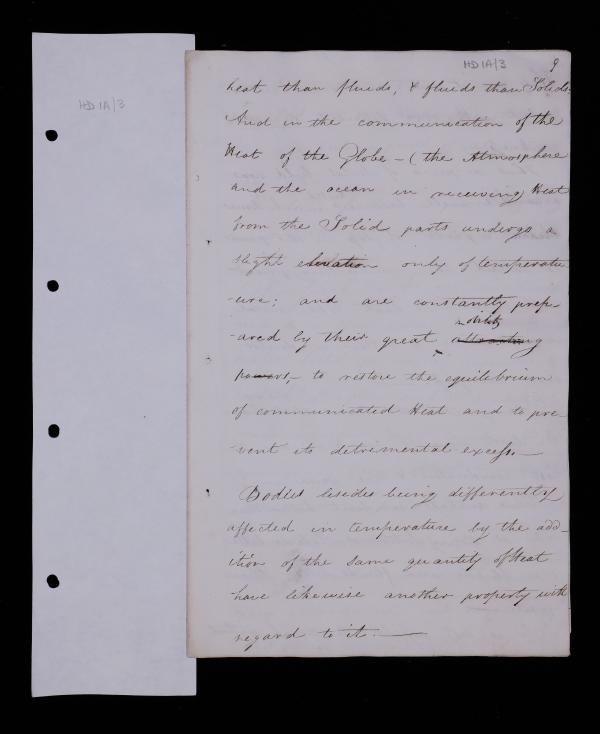 HD 1A/3
HD 1A/3 9
heat than fluids, & fluids than Solids.
And in the communication of the
Heat of the Globe - ( the Atmosphere
and the ocean in receiving Heat
from the Solid parts undergo a
slight elevation only of temperatu
-ure; and are constantly prep-
mobility
-ared by their great attracting
powers, - to restore the equilibrium
of communicated Heat and to pre-
-vent its detrimental excess. —
Bodies besides being differently
affected in temperature by the add-
-ition of the same quantity of Heat
have likewise another property with
regard to it. —